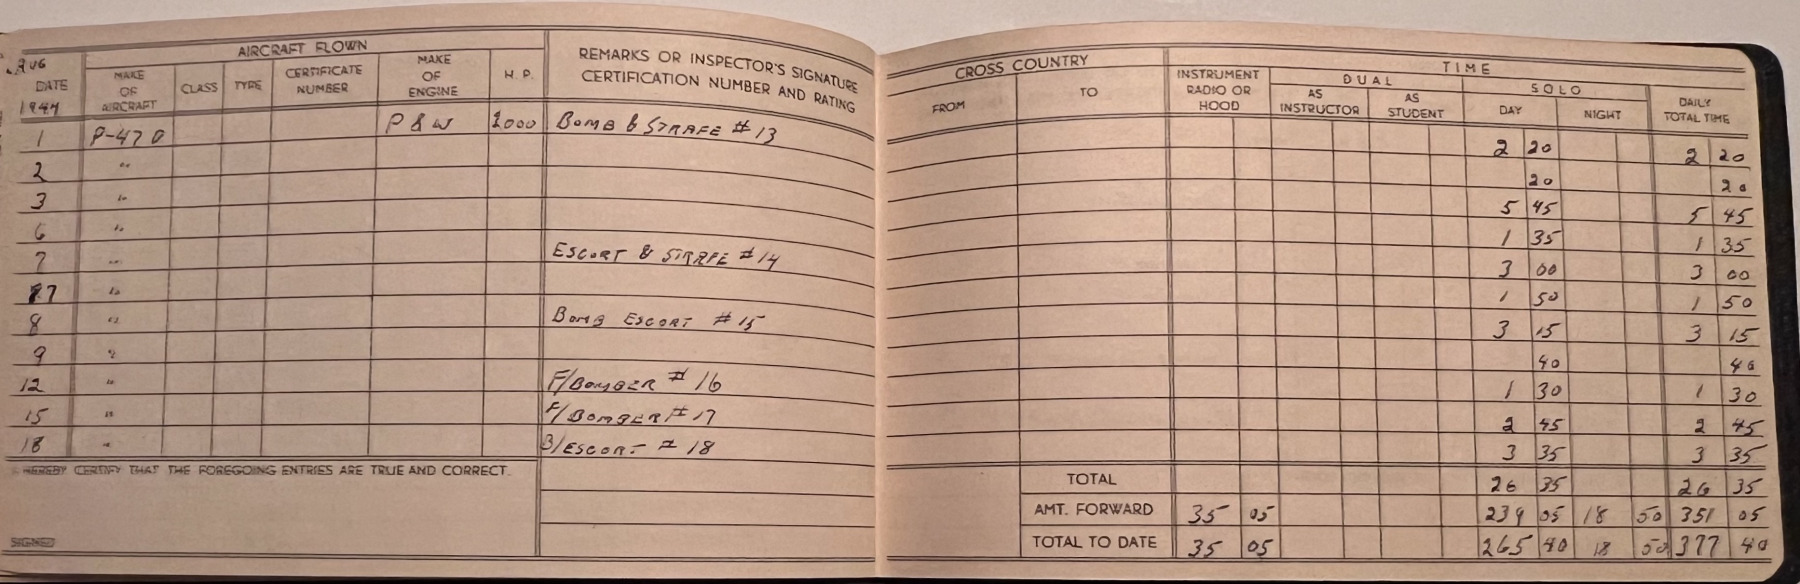 AUG
AIRCRAFT FLOWN
REMARKS OR INSPECTOR'S SIGNATURE
CERTIFICATION NUMBER AND RATING
DATE
MAKE OF AIRCRAFT
CLASS
TYPE
CERTIFICATE NUMBER
MAKE OF ENGINE
H. P.
1944
CROSS COUNTRY
TIME
FROM
TO
INSTRUMENT RADIO OR HOOD
DUAL
AS INSTRUCTOR
AS STUDENT
SOLO
DAY
NIGHT
DAILY TOTAL TIME
1 P-47 D P & W 2000 BOMB & STRAFE # 13 2 20 2 20
2 " 20 20
3 " 5 45 5 45
6 " 1 35 1 35
7 " ESCORT & STRAFE # 14 3 00 3 00
7 " 1 50 1 50
8 " BOMB ESCORT # 15 3 15 3 15
9 " 40 40
12 " F/BOMBER # 16 1 30 1 30
15 " F/BOMBER # 17 2 45 2 45
18 " B/ESCORT # 18 3 35 3 35
I HEREBY CERTIFY THAT THE FOREGOING ENTRIES ARE TRUE AND CORRECT.
TOTAL 26 35 26 35
AMT. FORWARD 35 05 239 05 18 50 351 05
SIGNED
TOTAL TO DATE 35 05 265 40 18 50 377 40